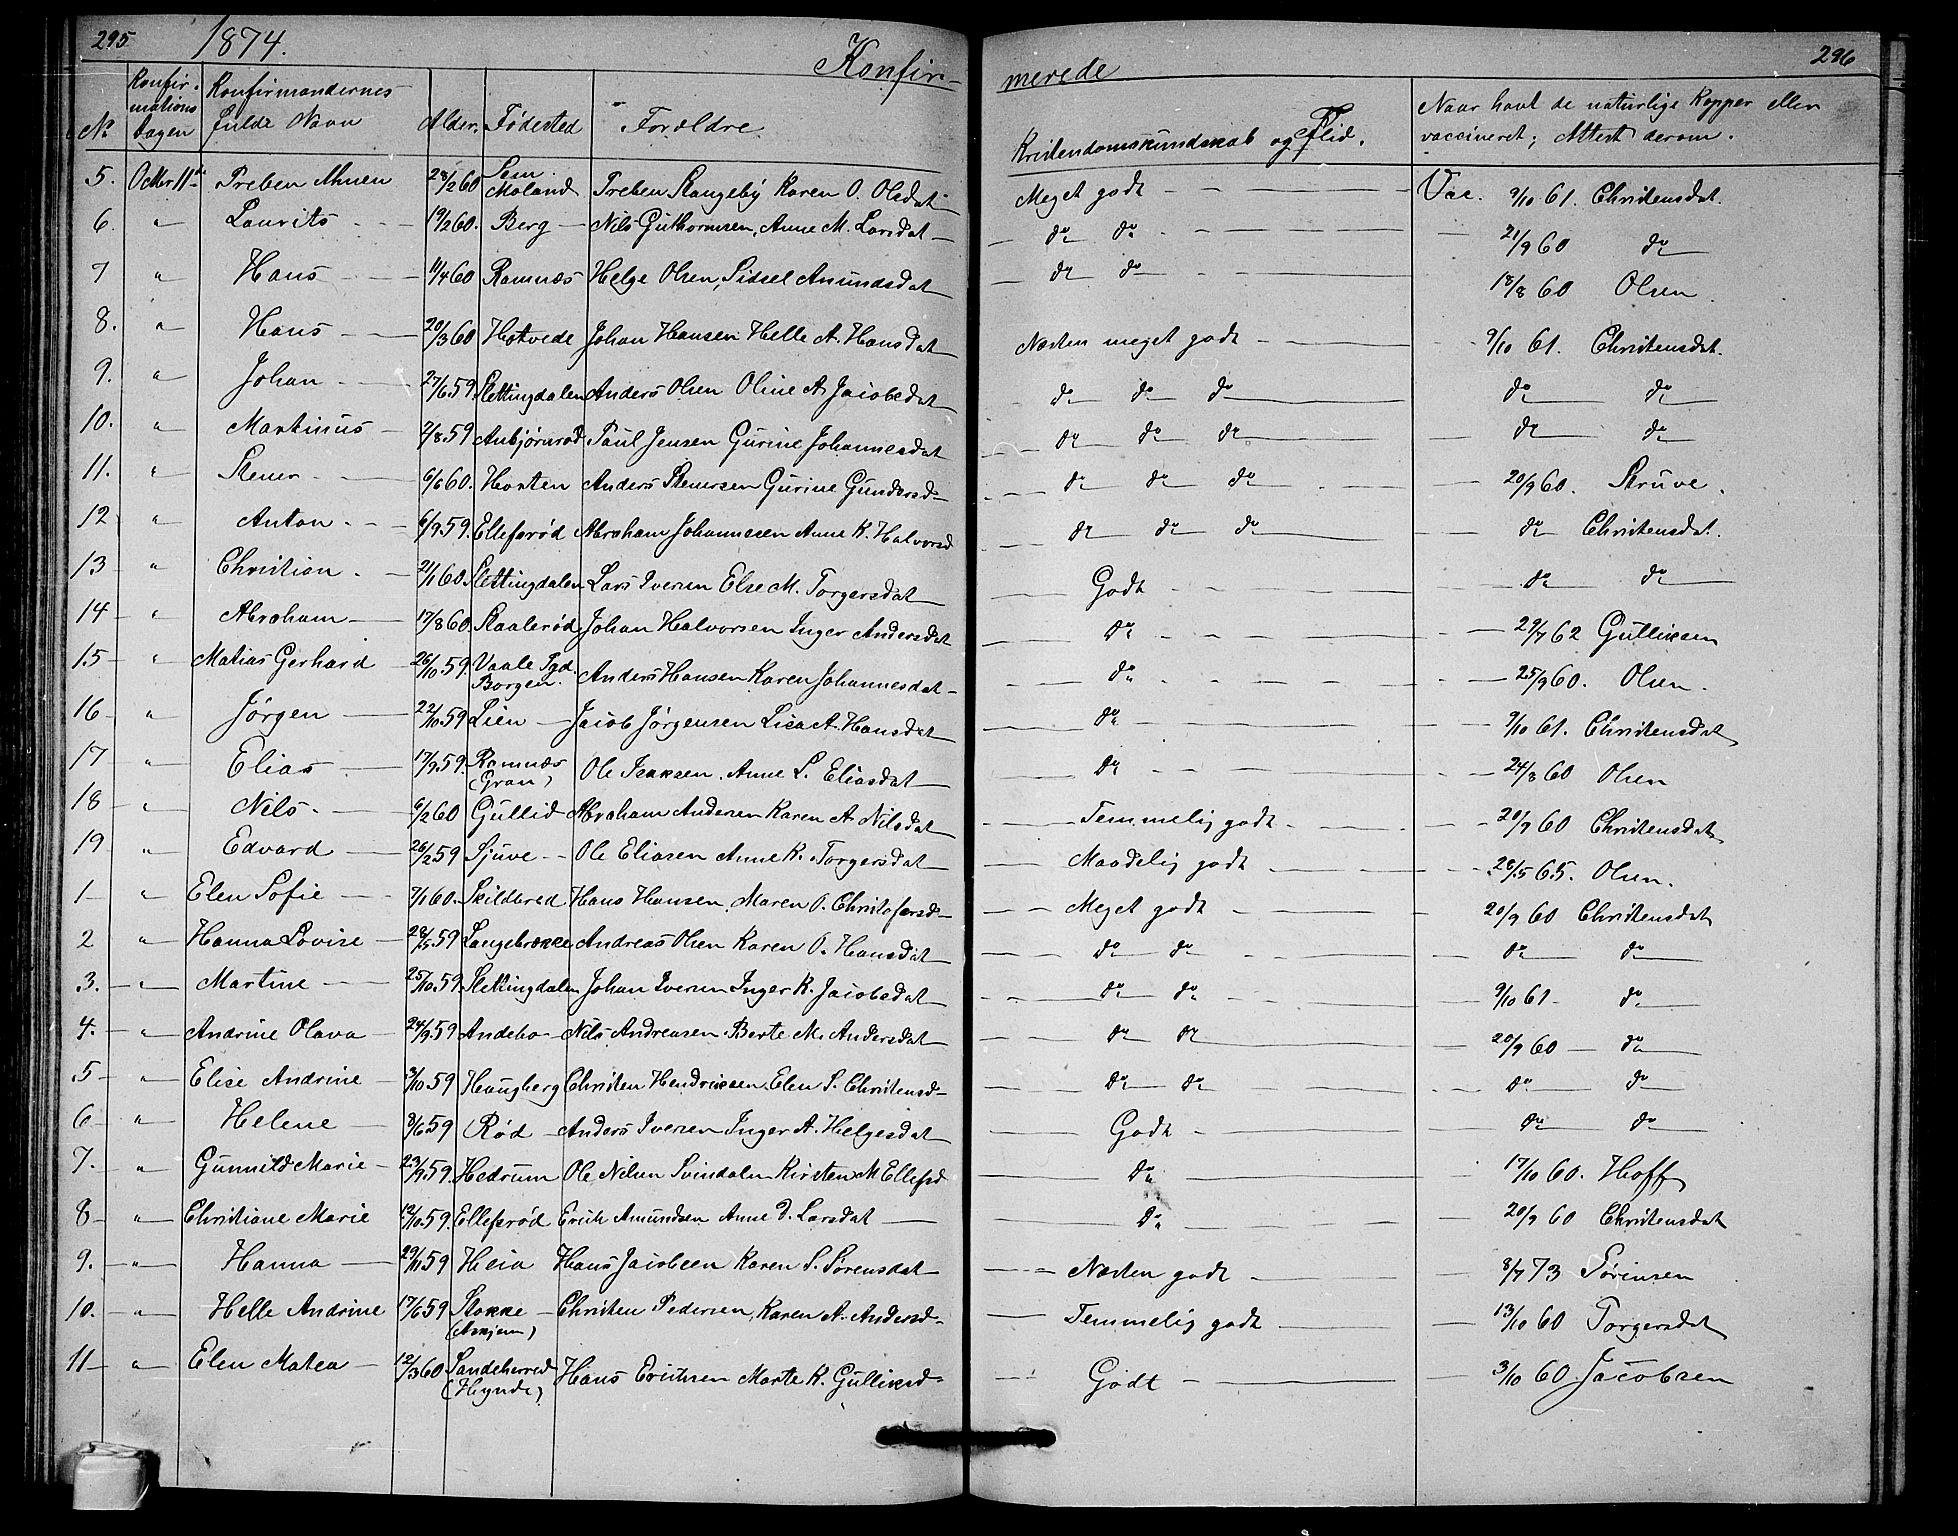 295 1874. Konfir- merede 296
No Konfirmations Dagen Konfirmandernes fulde Navn Alder. Fødested Forældre. Kristendomskundskab og Flid. Naar havt de naturlige Kopper eller vaccineret; Attest derom.
5. Octbr 11te Preben 28/2 60 Sem. Moland Preben Karen O. Olsdat Meget godt Vac. 9/10 61. Christensdat.
6. " Laurits 19/2 60. Berg Nils Guthormsen, Anne M. Larsdat do do 21/9 60 do
7 " Hans 11/4 60 Ramnæs Helge Olsen, Sidsel Amundsdat do do 18/8 60 Olsen.
8. " Hans 20/3 60 Hotvede Johan Hansen Helle A. Hansdat Næsten meget godt 9/10 61. Christensdat.
9. " Johan 27/6 59. Slettingdalen Anders Olsen Oline A. Jacobsdat do do do do do
10. " Martinus 2/8 59 Anbjørnrød Paul Jensen Gurine Johannesdat do do do do do
11. " Stener 6/6 60. Horten Anders Stenersen Gurine Gundersd do do do 20/9 60. Struve.
12 " Anton 6/9 59. Ellefsrød Abraham Johannesen Anne K. Halvorsd do do do do Christensdat.
13 " Christian 2/1 60 Slettingdalen Lars Iversen Else M. Torgersdat Godt do do
14 " Abraham 17/8 60. Skaalerød Johan Halvorsen Inger Andersdat do 29/7 62 Gulliksen
15 " Matias Gerhard 26/10 59. Vaale Pgd. Borgen. Anders Hansen Karen Johannesdat do 25/9 60. Olsen.
16 " Jørgen 22/10 59 Lien Jacob Jørgensen Lisa A. Hansdat do 9/10 61. Christensdat
17 " Elias 17/9 59. Ramnæs (Gran) Ole Isaksen. Anne L. Eliasdat do 24/8 60 Olsen
18 " Nils 6/2 60 Gullid Abraham Andersen Karen A. Nilsdat Temmelig godt 20/9 60 Christensdat
19 " Edvard 26/2 59 Sjuve Ole Eliasen Anne K. Torgersdat Maadelig godt 28/5 65. Olsen.
1 " Elen Sofie 7/1 60. Skildbred Hans Hansen, Maren O. Christofersd Meget godt 20/9 60 Christensdat
2 " Hanna Lovise 28/5 59 Langebrekke Andreas Olsen Karen O. Hansdat do do do do
3. " Martine 25/10 59. Slettingdalen Johan Iversen Inger K. Jacobsdat do do 9/10 61 do
4. " Andrine Olava 24/9 59 Andebo Nils Andreasen Berte M. Andersdat do do 20/9 60 do
5 " Elise Andrine 3/10 59 Haugberg Christen Hendriksen Elen S. Christensd do do do do
6 " Helene 3/6 59 Rød Anders Iversen Inger A. Helgesdat Godt do do
7. " Gunnild Marie 23/9 59. Hedrum Ole Nilsen Svindalen Kirsten M. Ellefsd do 17/10 60. Hoff
8 " Christiane Marie 12/10 59. Ellefsrød Erich Amundsen Anne D. Larsdat do 20/9 60 Christensdat
9. " Hanna 29/11 59 Heia Hans Jacobsen Karen S. Sørensdat Næsten godt 8/7 73 Sørinsen
10. " Helle Andrine 17/6 59 Stokke (Askjem) Christen Pedersen, Karen A. Andersd Temmelig godt 13/10 60 Torgersdat
11 " Elen Matea 12/3 60 Sandeherred (Hynde) Hans Erichsen Marte K. Gulliksd Godt 3/10 60. Jacobsen